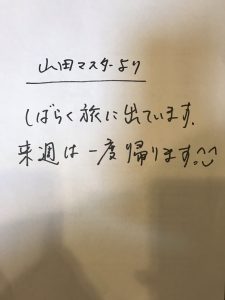 山田マスターより
しばらく旅に出ています.
来週は一度帰ります^^